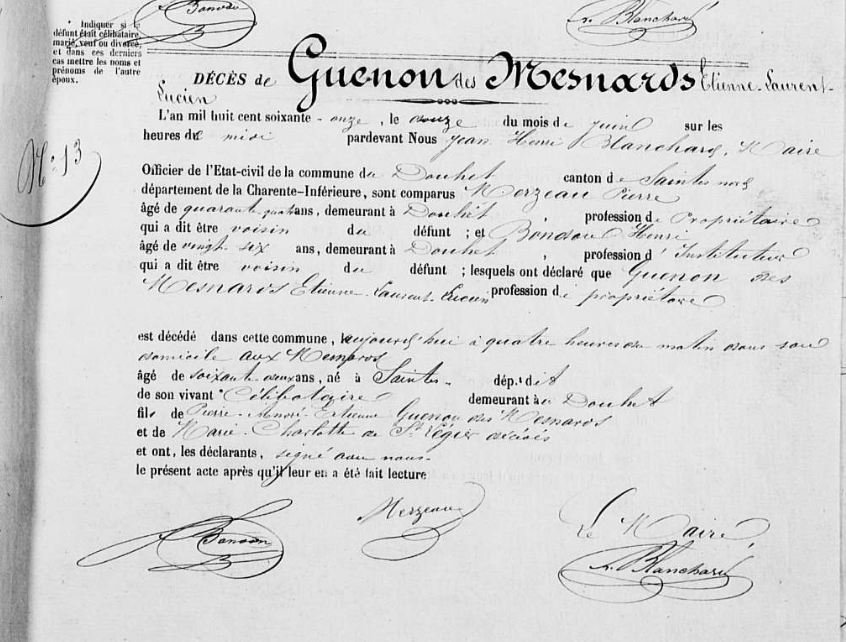 Bondou
H. Blanchard
* Indiquer si le
défunt était célibataire,
marié, veuf ou divorcé,
et dans ces derniers
cas mettre les noms et
prénoms de l'autre
époux.
DÉCÈS de Guenon des Mesnards Etienne-Laurent-
Lucien
L'an mil huit cent soixante-onze, le onze du mois de juin sur les
heures de midi pardevant Nous Jean Henri Blanchard, Maire
N° 13
Officier de l'Etat-civil de la commune du Douhet canton de Saintes nord
département de la Charente-Inférieure, sont comparus Merzeau Pierre
âgé de quarante quatre ans, demeurant à Douhet, profession de Propriétaire
qui a dit être voisin du défunt ; et Bondou Henri
âgé de vingt six ans, demeurant à Douhet, profession d'Instituteur
qui a dit être voisin du défunt ; lesquels ont déclaré que Guenon des
Mesnards Etienne-Laurent-Lucien profession de propriétaire
est décédé dans cette commune, aujourd'hui à quatre heures du matin dans son
domicile aux Mesnards
âgé de soixante deux ans, né à Saintes dép.t dit
de son vivant * Célibataire demeurant au Douhet
fils de Pierre-André-Etienne Guenon des Mesnards
et de Marie-Charlotte de St Légier décédés
et ont, les déclarants, signé avec nous
le présent acte après qu'il leur en a été fait lecture
Bondou
Merzeau
Le Maire,
H. Blanchard